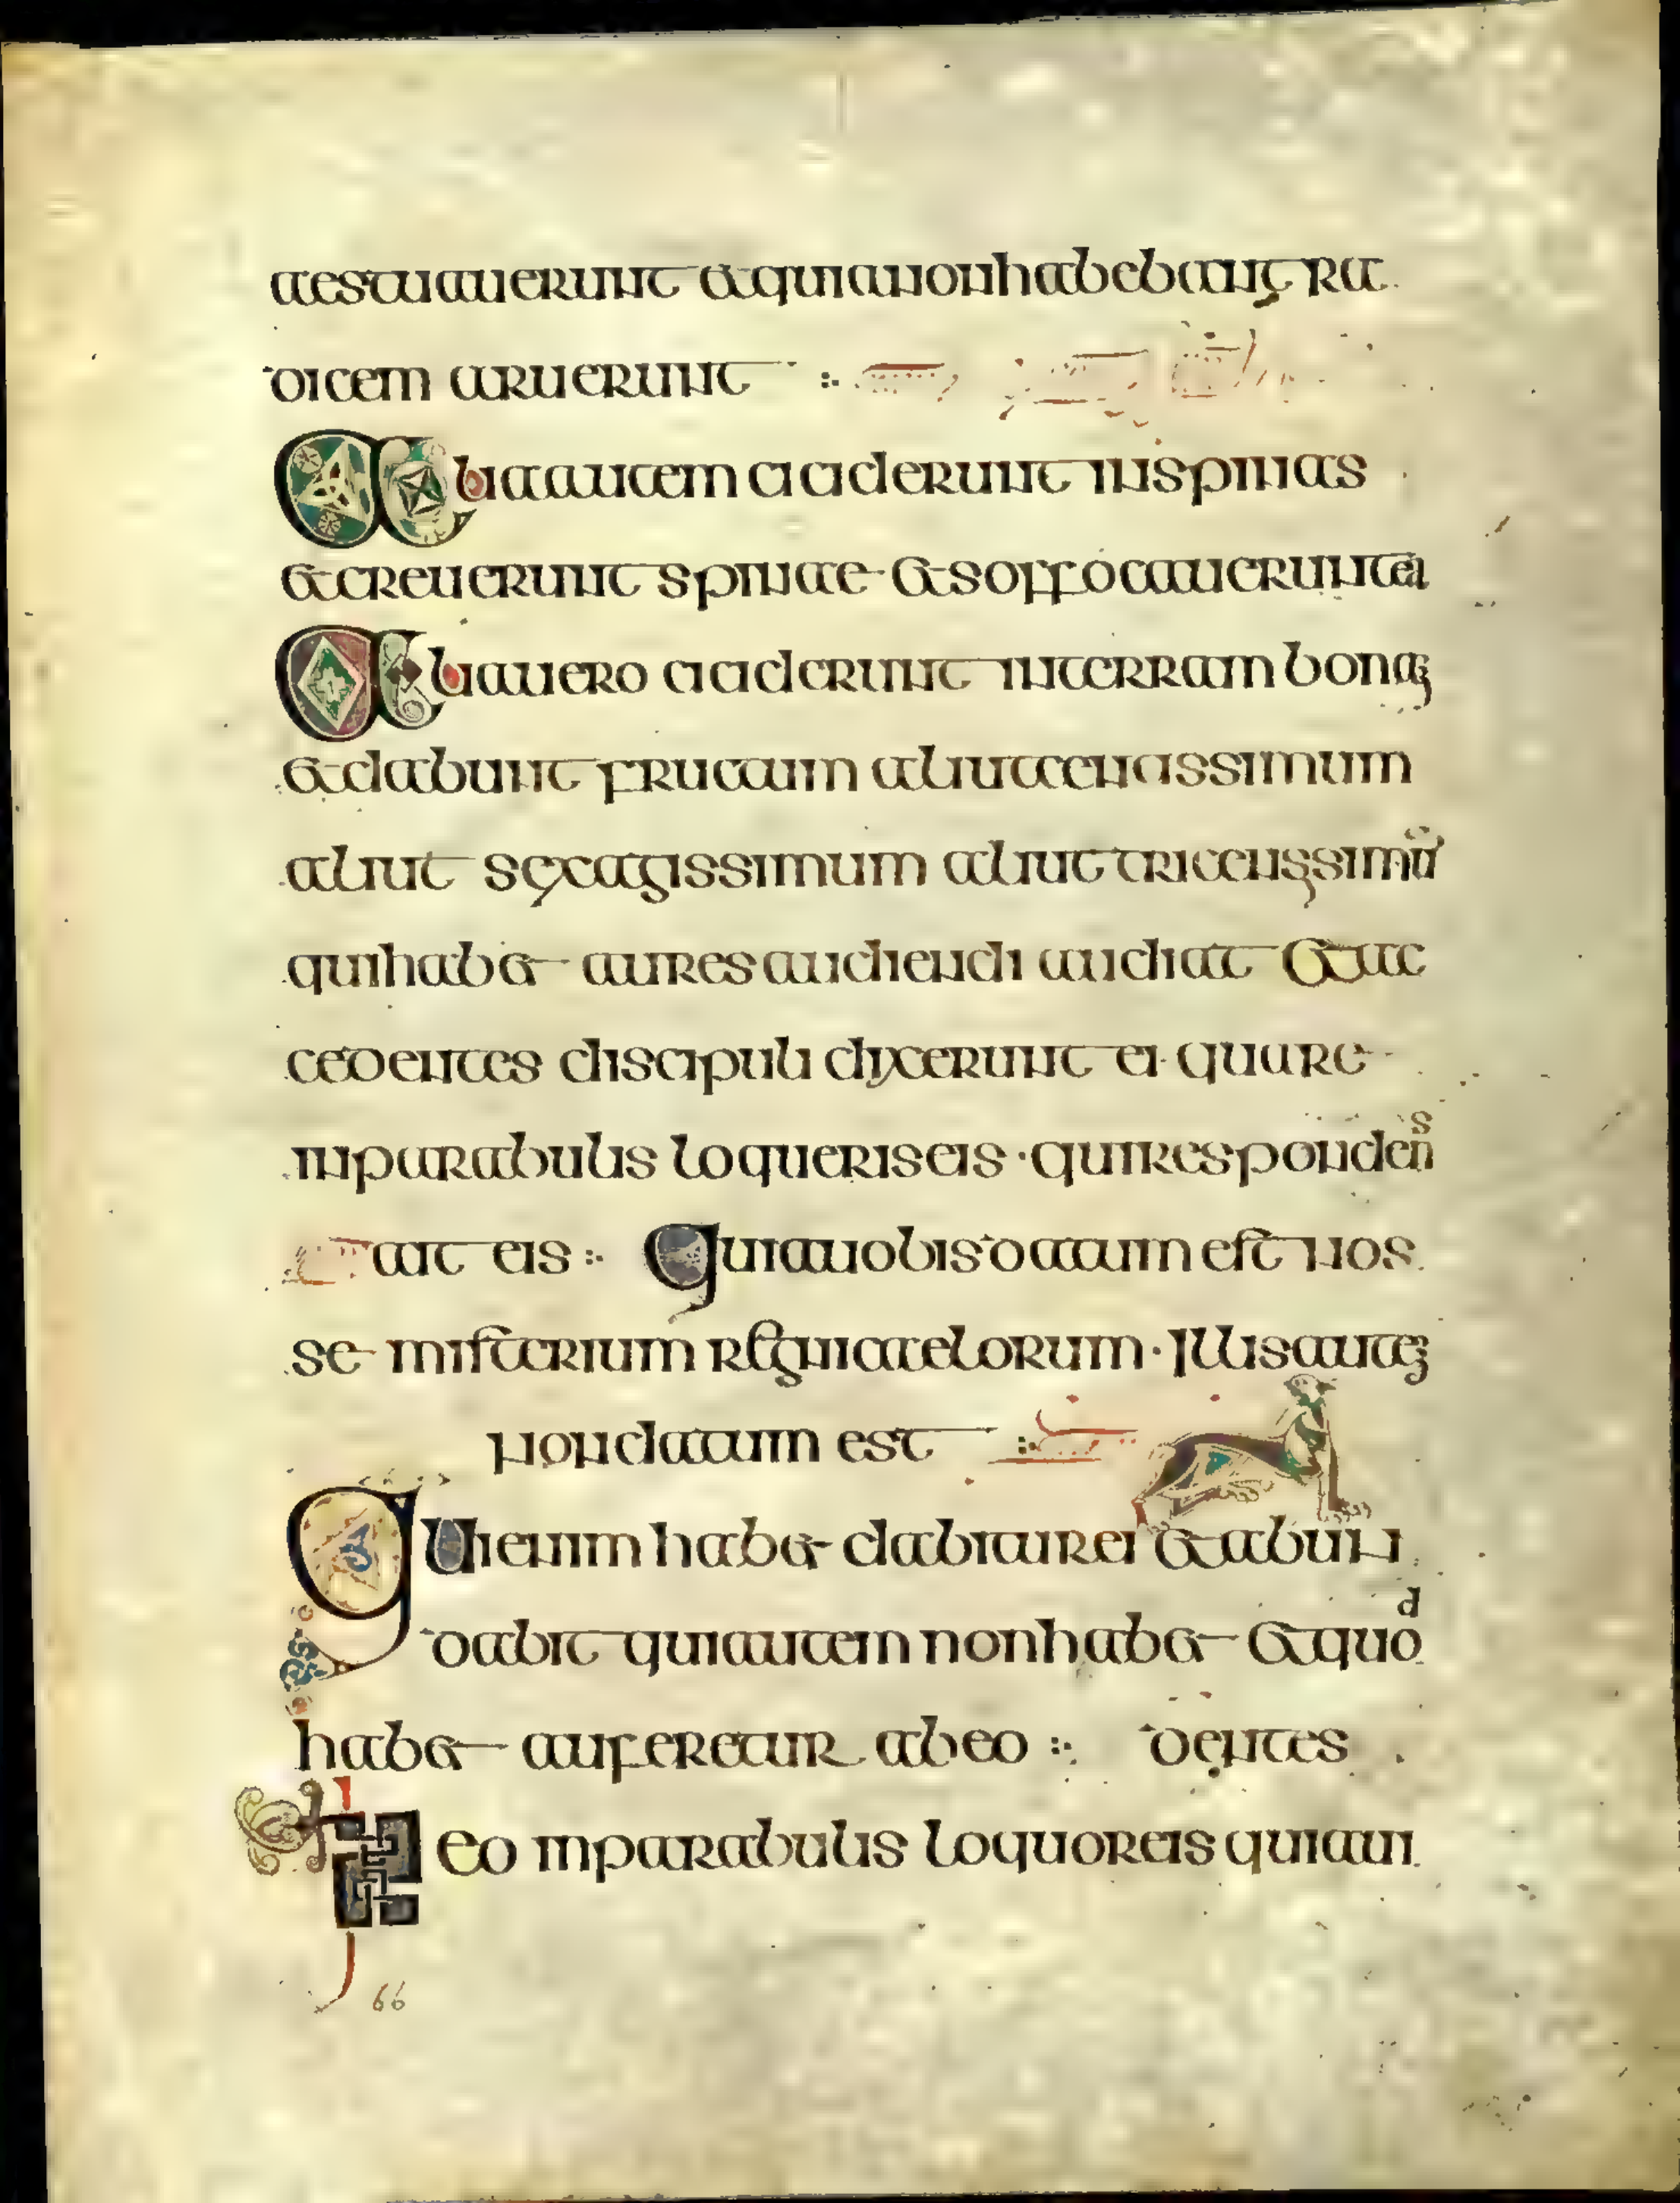 aestuauerunt et quia non habebant ra
dicem aruerunt
Alia autem ciciderunt in spinas
et creuerunt spinae et soffocauerunt ea
Alia uero ciciderunt in terram bonam
et dabunt fructum aliut centissimum
aliut sexagissimum aliut tricensimũ
qui habet aures audiendi audiat Et ac
cedentes discipuli dixerunt ei · quare
in parabulis loqueris eis · qui respondens
ait eis : Quia uobis datum est nos
se misterium regni caelorum · Illis autem
non datum est
Qui enim habet dabitur ei et abun
dabit qui autem non habet et quod
habet auferetur ab eo : dentes
Ideo in parabulis loquor eis quia ui
66